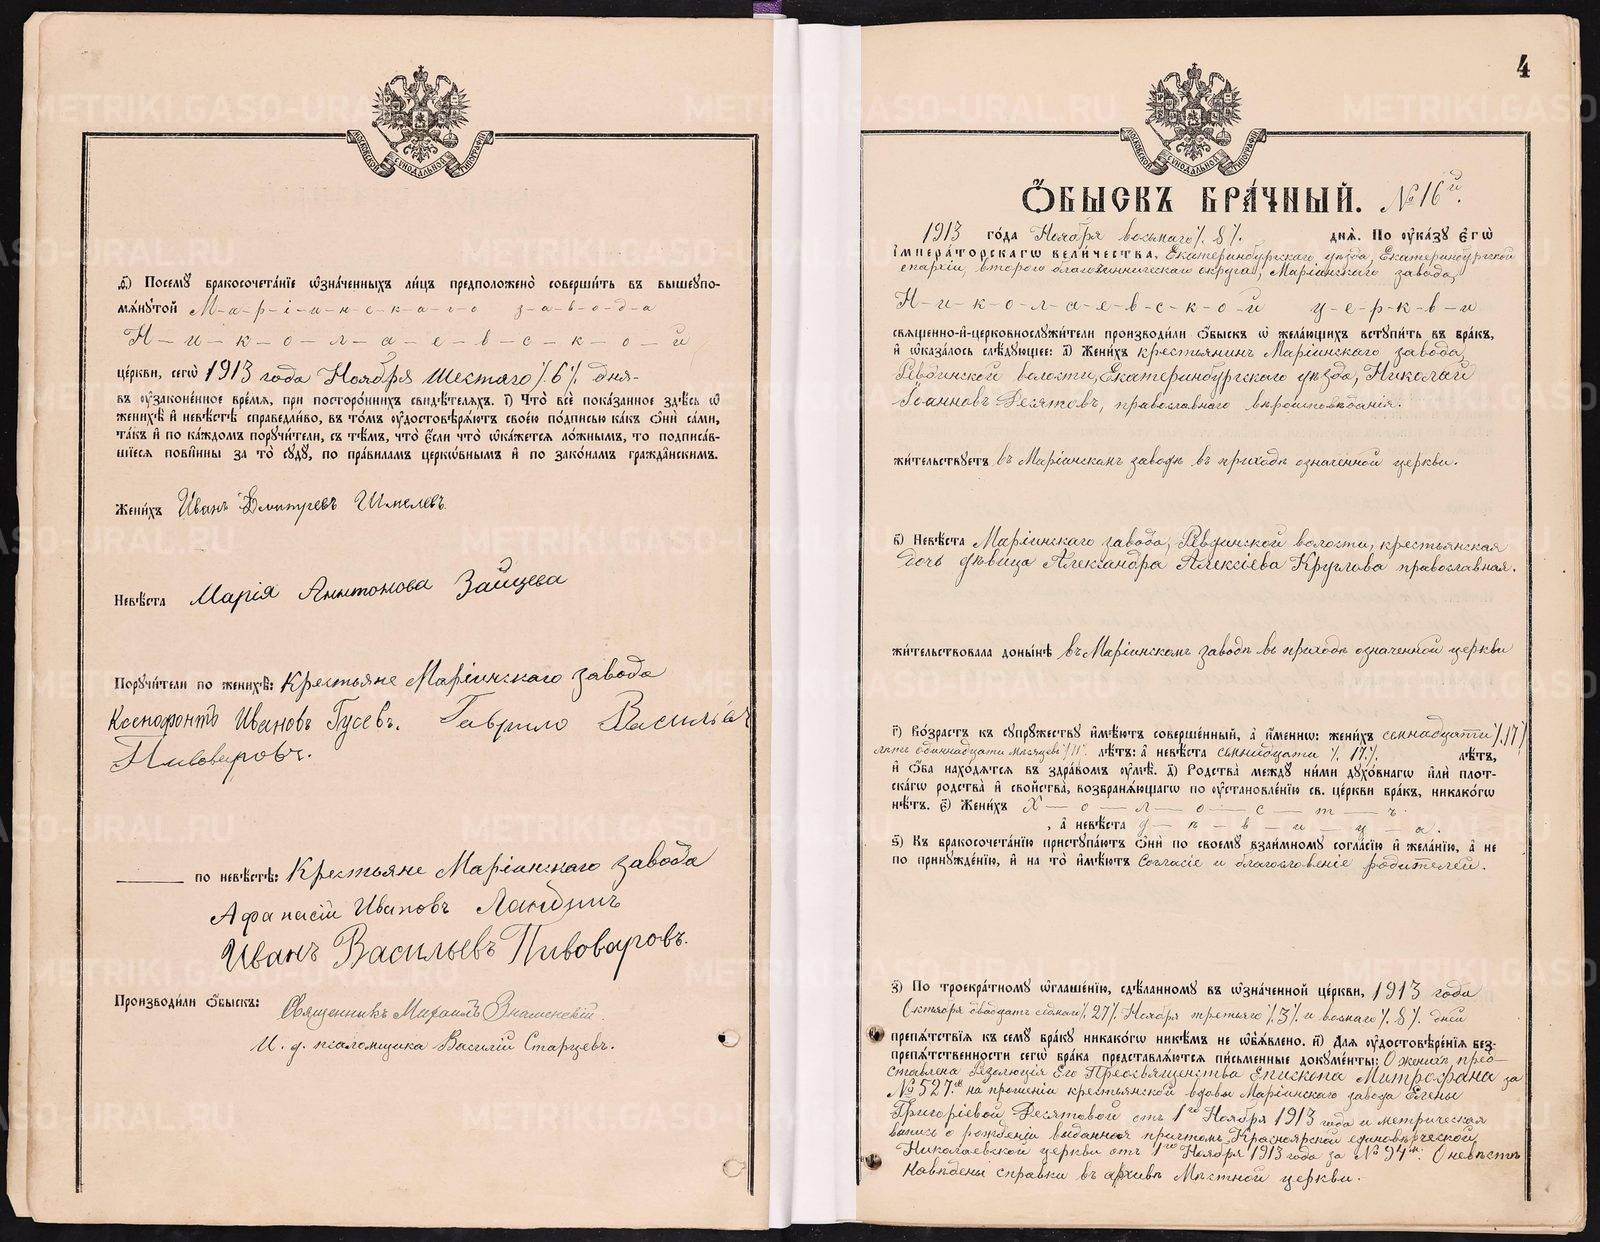 МОСКОВСКОЙ СУНОДАЛЬНОЙ ТИПОГРАФІИ
д҃) Посему бракосочета́нїе ѡзна́ченныхъ ли́цъ предположено̀ соверши́ть въ вышеупо-
мѧ́нутой М-а-р-і-и-н-с-к-а-г-о з-а-в-о-д-а
Н-и-к-о-л-а-е-в-с-к-о-й
це́ркви, сегѡ̀ 1913 года Ноября Шестаго /6/ дня-
въ ѹзако́ненное вре́мѧ, при посторо́ннихъ свидѣ́телѧхъ. і҃) Что̀ всѐ пока́занное здѣ́сь ѡ
женихѣ̀ и҆ невѣ́стѣ справедли́во, въ то́мъ ѹдостовѣрѧ́ютъ свое́ю по́дписью ка́къ ѻнѝ са́ми,
та́къ и҆ по ка́ждомъ поручи́тели, съ тѣ́мъ, что̀ є҆́сли что̀ ѡка́жетсѧ ло́жнымъ, то подписа́в-
шїесѧ пови́нны за то̀ суду̀, по пра́виламъ церко́внымъ и҆ по зако́намъ гражда́нскимъ.
Жени́хъ Иванъ Дмитріевъ Шмелевъ
Невѣ́ста Марія Аннтонова Зайцева
Поручи́тели по женихѣ̀: Крестьяне Маріинскаго завода
Ксенофонтъ Ивановъ Гусевъ. Гаврило Васильіч
Пивоваровъ.
по невѣ́стѣ: Крестьяне Маріинскаго завода
Афанасій Ивановъ
Иванъ Васильевъ Пивоваровъ.
Производи́ли ѻ҆́быскъ: Священникъ Михаилъ Знаменскій.
И. д. псаломщика Василій Старцевъ.
4
МОСКОВСКОЙ СУНОДАЛЬНОЙ ТИПОГРАФІИ
Ѻ҆́БЫСКЪ БРА́ЧНЫЙ. № 16й.
1913 го́да Ноября восьмаго /8/. днѧ̀. По ѹка́зу є҆гѡ̀
і҆мпера́торскагѡ вели́чества, Екатеринбургскаго уѣзда, Екатеринбургской
епархіи, второго благочинническаго округа, Маріинскаго завода,
Н-и-к-о-л-а-е-в-с-к-о-й ц-е-р-к-в-и
свѧщенно-и҆-церковнослужи́тели производи́ли ѻ҆́быскъ ѡ жела́ющихъ вступи́ть въ бра́къ,
и҆ ѡказа́лось слѣ́дующее: а҃) Жени́хъ крестьянинъ Маріинскаго завода
Ревдинской волости, Екатеринбургскаго уѣзда, Николай
Іоанновъ Десятовъ, православнаго вѣроисповѣданія.
жи́тельствуетъ въ Маріинскомъ заводѣ въ приходѣ означенной церкви.
в҃) Невѣ́ста Маріинскаго завода, Ревдинской волости, крестьянская
дочь дѣвица Александра Алексіева Круглова православная.
жи́тельствовала доны́нѣ въ Маріинскомъ заводѣ въ приходѣ означенной церкви
г҃) Во́зрастъ къ супру́жеству и҆мѣ́ютъ соверше́нный, а҆ и҆́меннѡ: жени́хъ семнадцати /17/
лѣтъ одиннадцати мѣсяцевъ /11/ лѣ́тъ: а҆ невѣ́ста семнадцати /17/. лѣ́тъ,
и҆ ѻ҆́ба нахо́дѧтсѧ въ здра́вомъ ѹмѣ̀. д҃) Родства̀ между ни́ми духо́внагѡ и҆лѝ пло́т-
скагѡ родства̀ и҆ сво́йства, возбранѧ́ющагѡ по ѹстановле́нїю св. це́ркви бра́къ, никако́гѡ
нѣ́тъ. є҃) Жени́хъ Х-о-л-о-с-т-ъ.
, а҆ невѣ́ста д-ѣ-в-и-ц-а.
ѕ҃) Къ бракосочета́нїю приступа́ютъ ѻнѝ по своему̀ взаи́мному согла́сїю и҆ жела́нїю, а҆ не
по принужде́нїю, и҆ на то̀ и҆мѣ́ютъ согласіе и благословеніе родителей.
з҃) По троекра́тному ѡглаше́нїю, сдѣ́ланному въ ѡзна́ченной це́ркви, 1913 года
Октября двадцать седьмаго /27/ Ноября третьяго /3/ и восьмаго /8/ дней
препѧ́тствїѧ къ сему̀ бра́ку никако́гѡ никѣ́мъ не ѡб̾ѧ́влено. и҃) Длѧ ѹдостовѣре́нїѧ без-
препѧ́тственности сегѡ̀ бра́ка представлѧ́ютсѧ пи́сьменные докуме́нты: О женихѣ пред-
ставлена Резолюція Его Преосвященства Епископа Митрофана за
№ 527м на прошеніи крестьянской вдовы Маріинскаго завода Елены
Григоріевой Десятовой отъ 1го Ноября 1913 года и метрическая
выпись о рожденіи выданная причтомъ Красноярской единовѣрческой
Николаевской церкви отъ 1го Ноября 1913 года за № 94м. О невѣстѣ
наведены справки въ архивѣ Мѣстной церкви.
METRIKI.GASO-URAL.RU